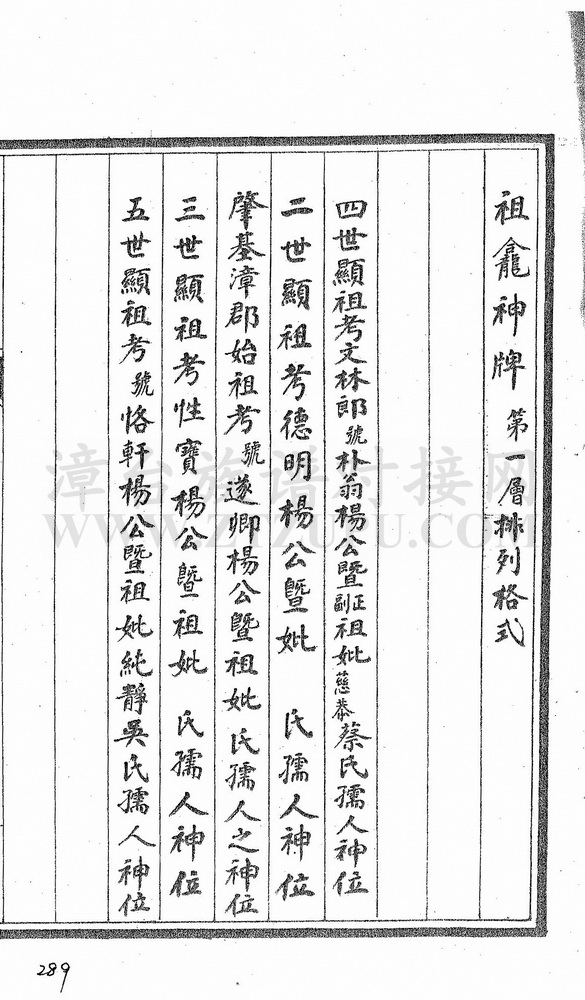 祖龕神牌 第一層排列格式
四世顯祖考文林郎號朴翁楊公暨正副祖妣慈恭蔡氏孺人神位
二世顯祖考德明楊公暨妣 氏孺人神位
肇基漳郡始祖考號遂卿楊公暨祖妣 氏孺人之神位
三世顯祖考性寶楊公暨祖妣 氏孺人神位
五世顯祖考號恪軒楊公暨祖妣純靜吳氏孺人神位
289
漳台族谱对接网
www.ztzupu.com